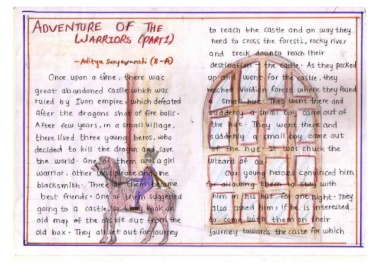 ADVENTURE OF THE
WARRIORS (PART 1)
-Aditya Suryavanshi (8-A)
Once upon a time, there was
great abandoned castle which was
ruled by Ivon empire, which defeated
after the dragons
After few years, in a small village,
there lived three young heros, who
decided to kill the dragon save
the world. One of them a girl
warrior, other
blacksmith. Three them
best friends. One suggested
going to a castle,
old map of the castle out from the
old box. They all set out for journey
to reach the castle and on way they
need to cross the forests, rocky river
and treck down to reach their
destination the castle. As they packed
up went for the castle, they
forest where they found
small hut. They went there and
suddenly a small boy came out of
the They went there and
suddenly a small boy came out
the hut. It was chuck the
wizard of
Our young heroes convinced him
for allowing them to stay with
him in his hut for one night. They
also asked him, if he is interested
to come with them on their
journey towards the castle for which